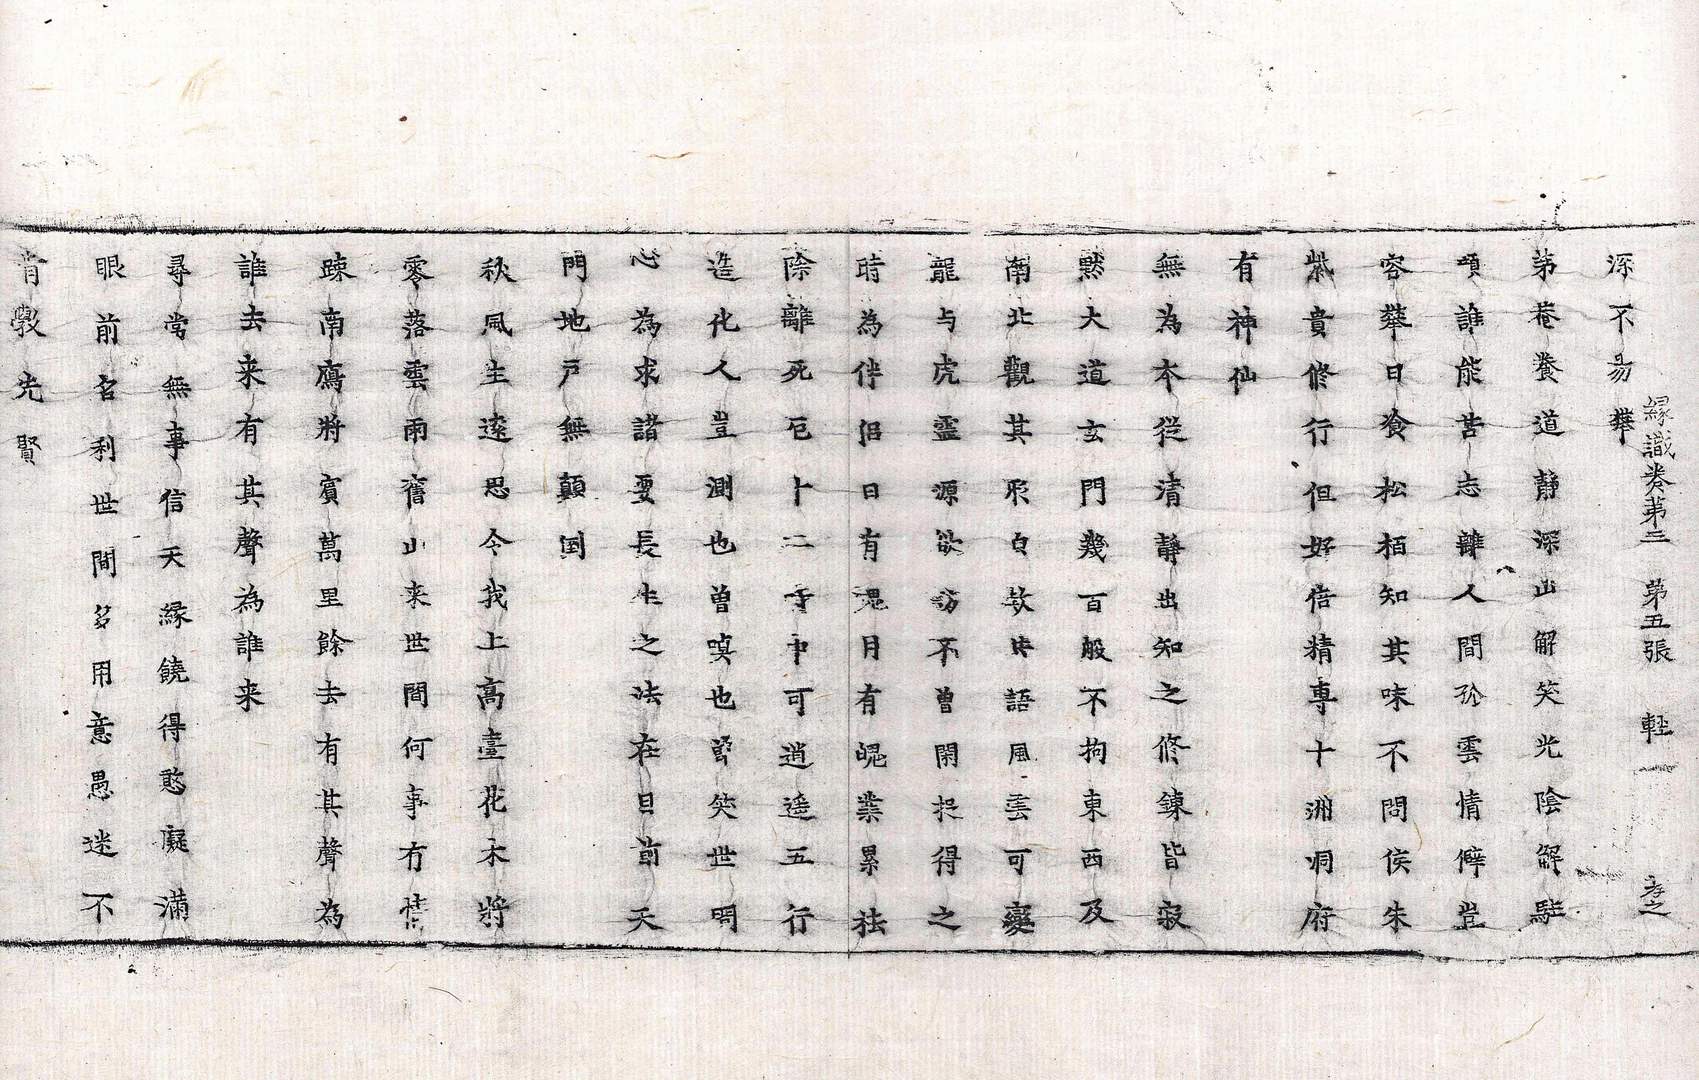 緣識卷第三 第五張 輕
深不易攀
茅菴養道靜深山解笑光陰解駐
頭誰能苦志離人間孤雲情僻豈
容攀日飡松栢知其味不問侯朱
紫貴修行但好倍精專十洲洞府
有神仙
無為本從清靜出知之修鍊皆寂
黙大道玄門幾百般不拘東西及
南北觀其形白共語風雲可變
龍与虎靈源欲訪不曾閑捉得之
時為伴侶日有䰟月有魄業累祛
除離死厄卜二可逍遥五行
造化人豈測也曾嗔也曾笑世間
心為求諸要長生之法在目前天
門地户無顛倒
秋風生遠思令我上高臺花木將
零落雲雨舊山来世間何事有情
踈南鴈將賓萬里餘去有其聲為
誰去来有其聲為誰来
尋常無事信天緣饒得憨癡滿
眼前名利世間多用意愚迷不
肯斆先賢